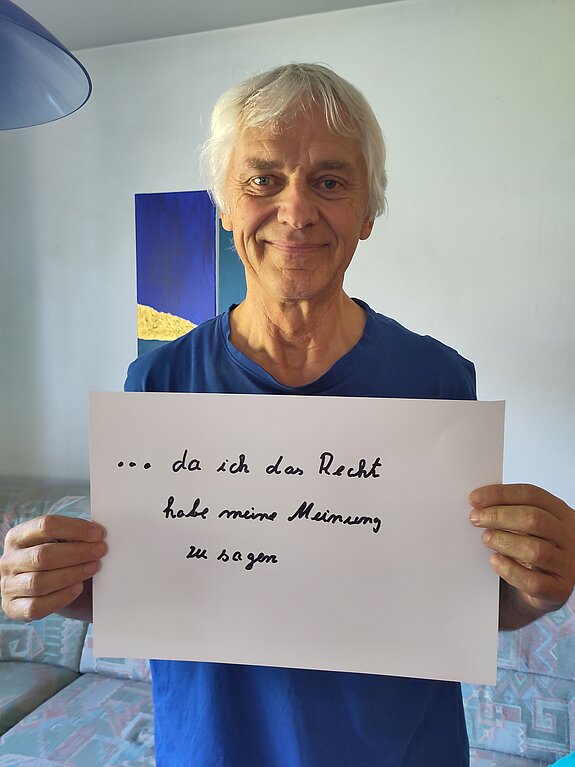 ... da ich das Recht
habe meine Meinung
zu sagen